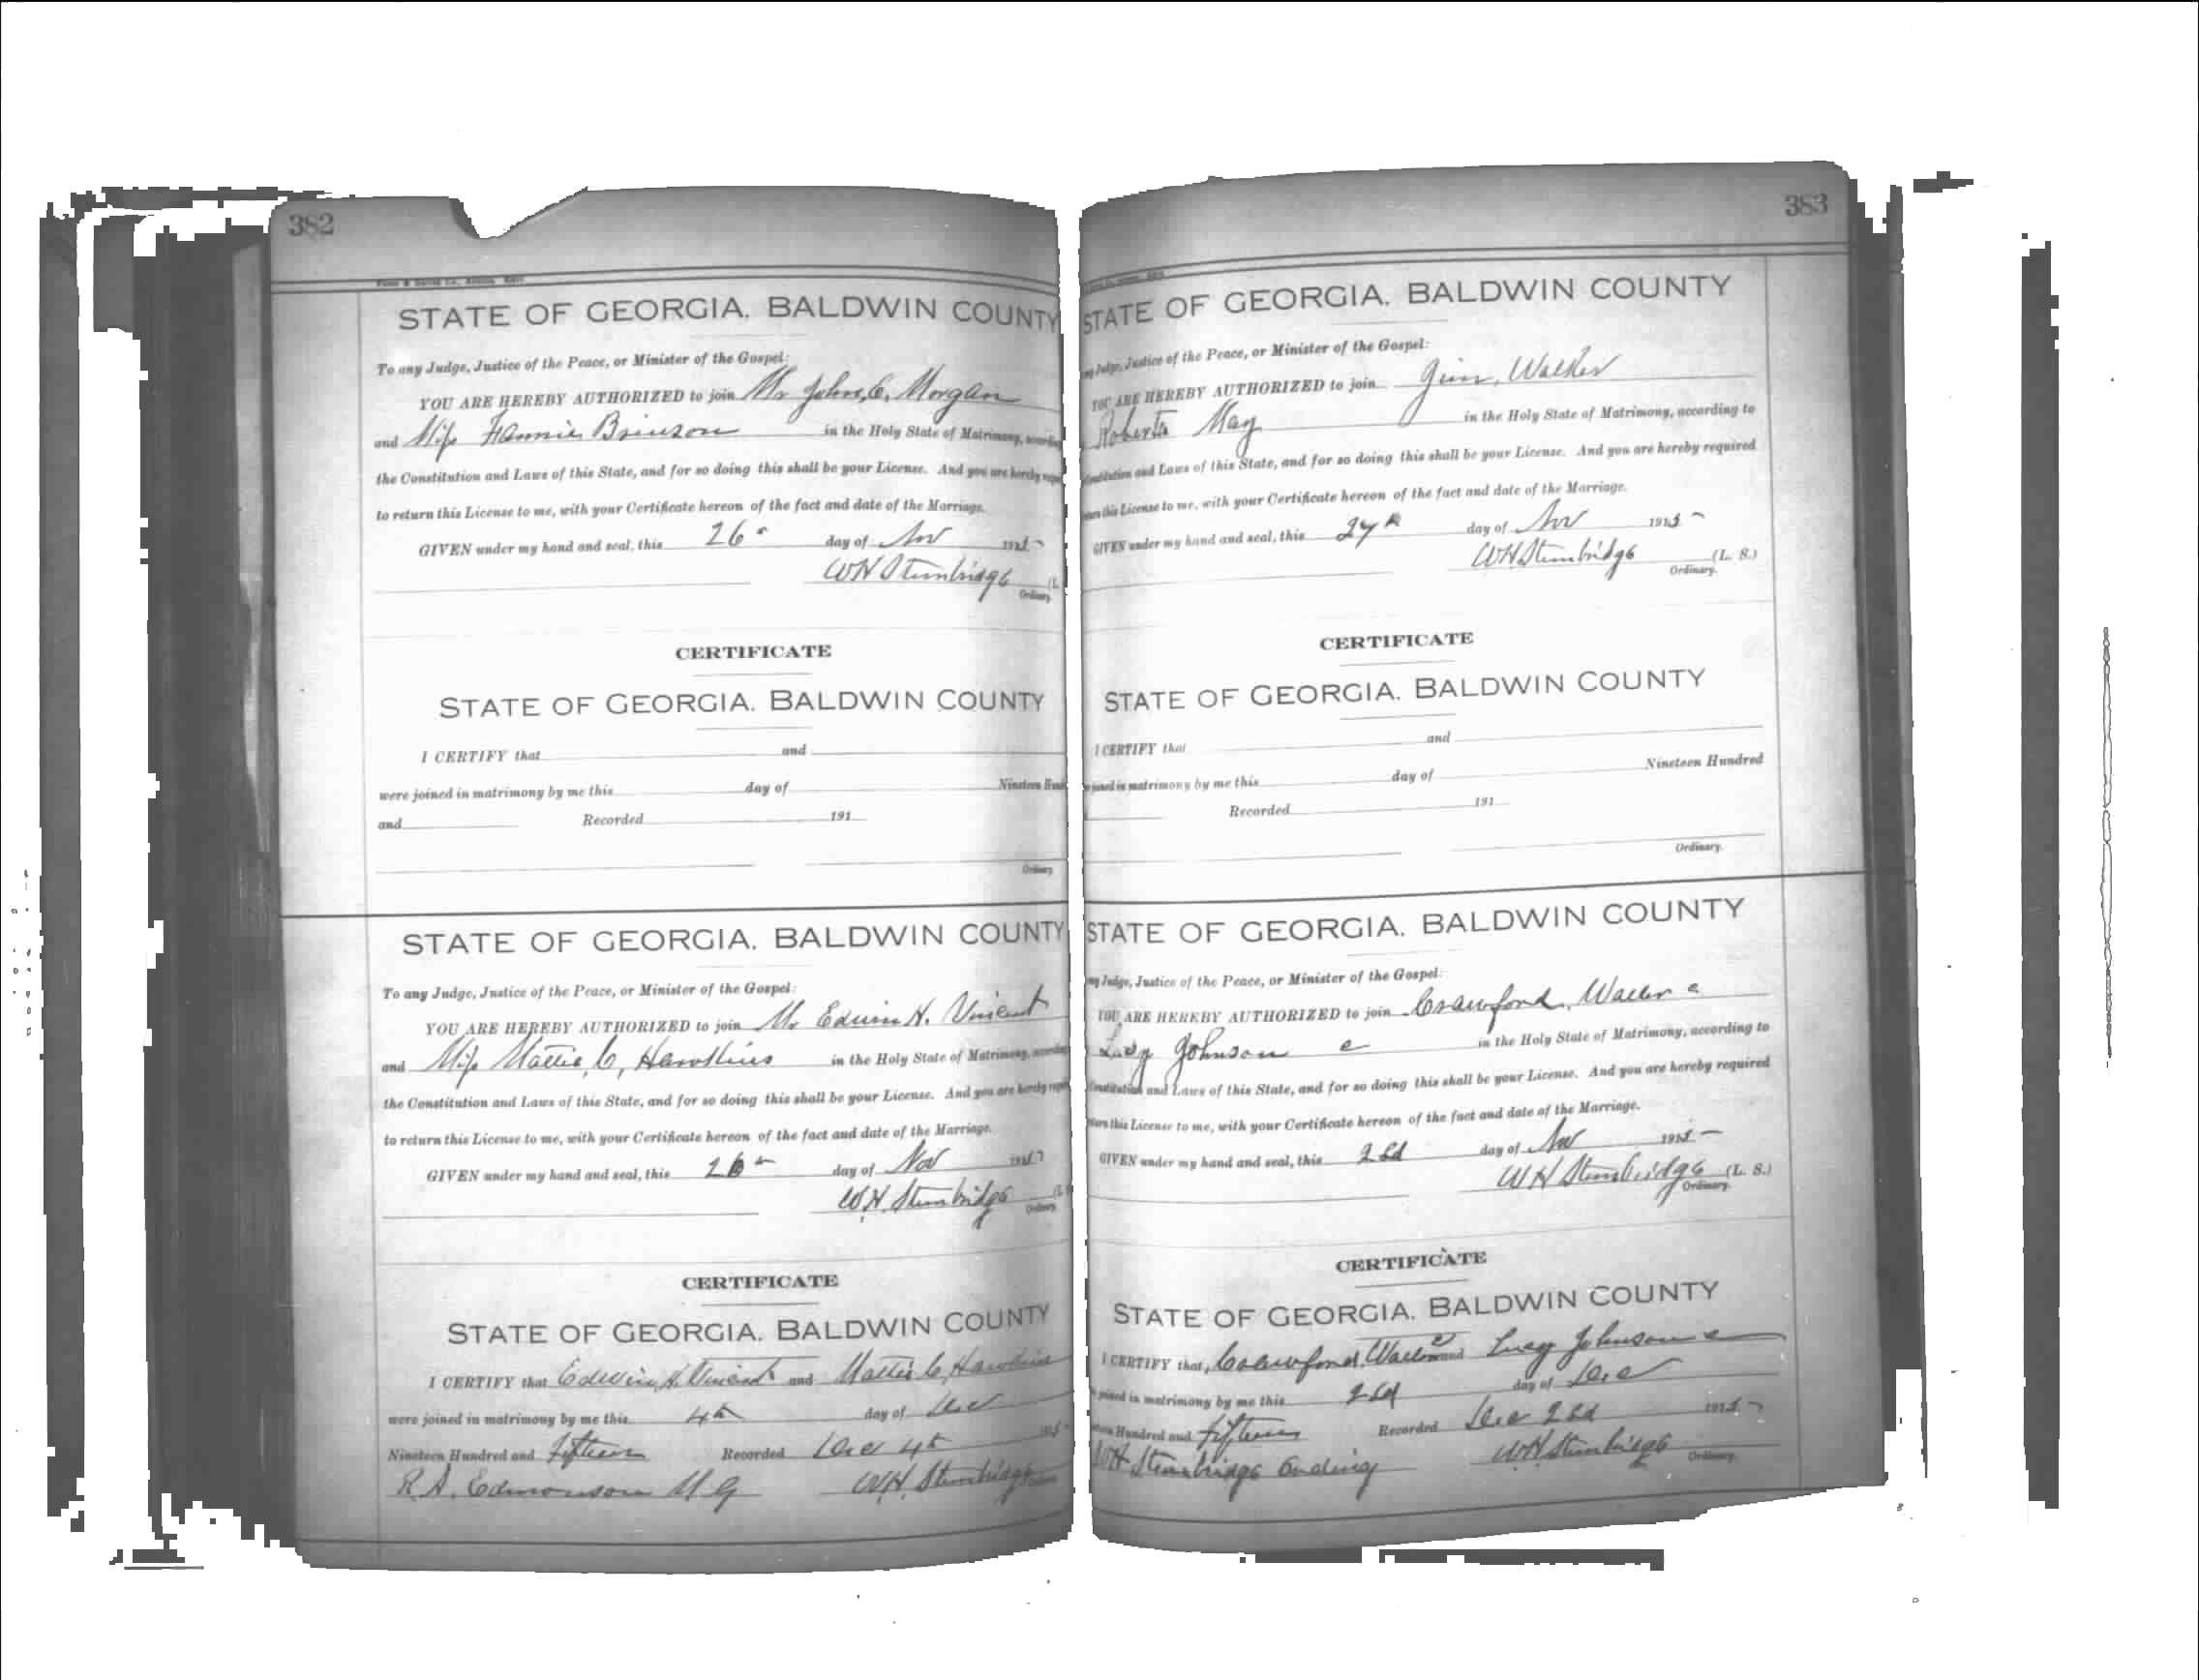 382
STATE OF GEORGIA. BALDWIN COUNTY
To any Judge, Justice of the Peace, or Minister of the Gospel:
YOU ARE HEREBY AUTHORIZED to join Mr John, C, Morgan
and Miss Fannie Brinson in the Holy State of Matrimony,
the Constitution and Laws of this State, and for so doing this shall be your License. And you are hereby
to return this License to me, with your Certificate hereon of the fact and date of the Marriage.
GIVEN under my hand and seal, this 26 day of Nov 1915
WH Stembridge (L.
Ordinary
CERTIFICATE
STATE OF GEORGIA. BALDWIN COUNTY
I CERTIFY that and
were joined in matrimony by me this day of Nineteen
and Recorded 191
Ordinary
STATE OF GEORGIA. BALDWIN COUNTY
To any Judge, Justice of the Peace, or Minister of the Gospel:
YOU ARE HEREBY AUTHORIZED to join Mr Edwin H. Vincent
and Miss Mattie, C, Hawkins in the Holy State of Matrimony,
the Constitution and Laws of this State, and for so doing this shall be your License. And you are hereby
to return this License to me, with your Certificate hereon of the fact and date of the Marriage.
GIVEN under my hand and seal, this 26 day of Nov 1915
W.H. Stembridge
Ordinary
CERTIFICATE
STATE OF GEORGIA. BALDWIN COUNTY
I CERTIFY that Edwin, H. Vincent and Mattie C, Hawkins
were joined in matrimony by me this 4th day of Dec
Nineteen Hundred and fifteen Recorded Dec 4th 1915
R.A. Edmonson M G W.H. Stembridge
383
STATE OF GEORGIA. BALDWIN COUNTY
Judge, Justice of the Peace, or Minister of the Gospel:
YOU ARE HEREBY AUTHORIZED to join Jim, Walker
Roberta May in the Holy State of Matrimony, according to
and Laws of this State, and for so doing this shall be your License. And you are hereby required
this License to me, with your Certificate hereon of the fact and date of the Marriage.
GIVEN under my hand and seal, this 27th day of Nov 1915
WH Stembridge (L. S.)
Ordinary.
CERTIFICATE
STATE OF GEORGIA. BALDWIN COUNTY
I CERTIFY that and
joined in matrimony by me this day of Nineteen Hundred
Recorded 191
Ordinary.
STATE OF GEORGIA. BALDWIN COUNTY
Judge, Justice of the Peace, or Minister of the Gospel:
YOU ARE HEREBY AUTHORIZED to join Crawford, Waller c
Lucy Johnson c in the Holy State of Matrimony, according to
and Laws of this State, and for so doing this shall be your License. And you are hereby required
this License to me, with your Certificate hereon of the fact and date of the Marriage.
GIVEN under my hand and seal, this 2d day of Nov 1915
W H Stembridge (L. S.)
Ordinary.
CERTIFICATE
STATE OF GEORGIA. BALDWIN COUNTY
I CERTIFY that, Crawford, Waller c and Lucy Johnson c
joined in matrimony by me this 2d day of Dec
Hundred and fifteen Recorded Dec 2d 1915
WH Stembridge Ordinary WH Stembridge Ordinary.